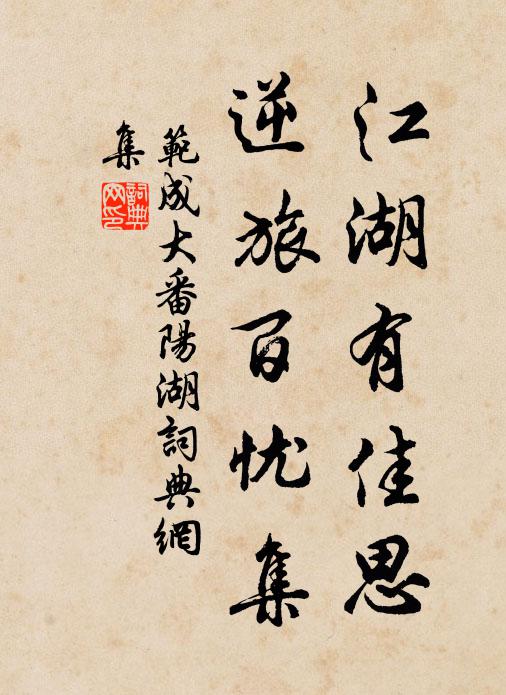 江湖有佳思
逆旅百忧集
範成大番陽湖詞典網
集
詞典
网印